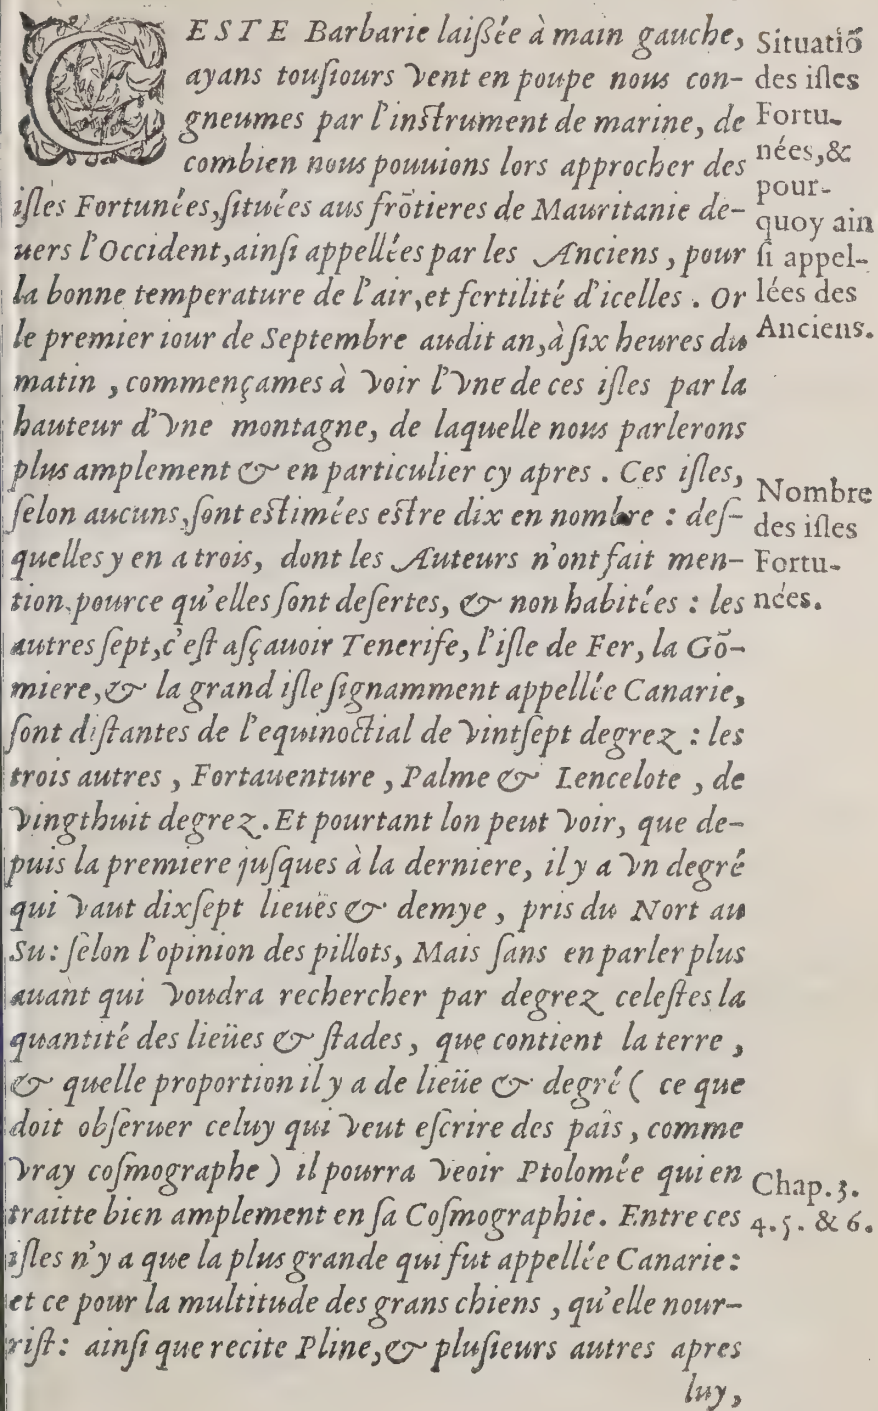 CESTE Barbarie laißée à main gauche,
ayans touſiours vent en poupe nous con-
gneumes par l'inſtrument de marine, de
combien nous pouuions lors approcher des
iſles Fortunées, ſituées aus frōtieres de Mauritanie de-
uers l'Occident, ainſi appellées par les Anciens, pour
la bonne temperature de l'air, et fertilité d'icelles. Or
le premier iour de Septembre audit an, à ſix heures du
matin, commençames à voir l'vne de ces iſles par la
hauteur d'vne montagne, de laquelle nous parlerons
plus amplement & en particulier cy apres. Ces iſles,
ſelon aucuns, ſont eſtimées eſtre dix en nombre: deſ-
quelles y en a trois, dont les Auteurs n'ont fait men-
tion, pource qu'elles ſont deſertes, & non habitées: les
autres ſept, c'eſt aſçauoir Tenerife, l'iſle de Fer, la Gō-
miere, & la grand iſle ſignamment appellée Canarie,
ſont diſtantes de l'equinoctial de vintſept degrez: les
trois autres, Fortauenture, Palme & Lencelote, de
vingthuit degrez. Et pourtant lon peut voir, que de-
puis la premiere juſques à la derniere, il y a vn degré
qui vaut dixſept lieuës & demye, pris du Nort au
Su: ſelon l'opinion des pillots, Mais ſans en parler plus
auant qui voudra rechercher par degrez celeſtes la
quantité des lieües & ſtades, que contient la terre,
& quelle proportion il y a de lieüe & degré (ce que
doit obſeruer celuy qui veut eſcrire des païs, comme
vray coſmographe) il pourra veoir Ptolomée qui en
traitte bien amplement en ſa Coſmographie. Entre ces
iſles n'y a que la plus grande qui fut appellée Canarie:
et ce pour la multitude des grans chiens, qu'elle nour-
riſt: ainſi que recite Pline, & pluſieurs autres apres
luy,
Situatiō
des iſles
Fortu-
nées, &
pour-
quoy ain
ſi appel-
lées des
Anciens.
Nombre
des iſles
Fortu-
nées.
Chap. 3.
4. 5. & 6.